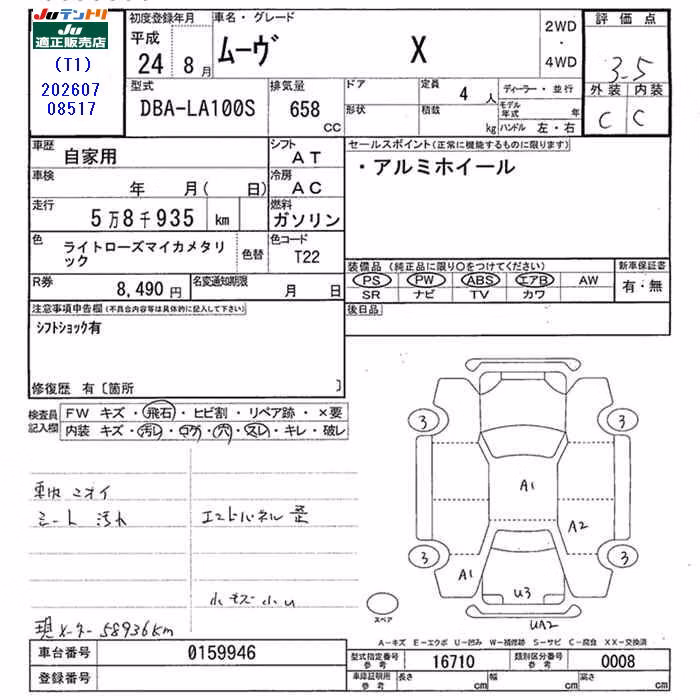 JUテントリ
JU適正販売店
(T1)
202607
08517
初度登録年月
平成
24 8月
車名・グレード
ムーヴ X
2WD
・
4WD
評価点
3.5
外装 内装
C C
型式
DBA-LA100S
排気量
658
CC
ドア
形状
定員
4 人
積数
kg
ディーラー・並行
モデル年式 年
ハンドル 左・右
車歴
自家用
シフト
AT
車検
年 月( 日)
冷房
AC
走行
5万8千935 km
燃料
ガソリン
色
ライトローズマイカメタリック
色替
色コード
T22
R券
8,490 円
名変通知期限
月 日
セールスポイント(正常に機能するものに限ります)
・アルミホイール
装備品 (純正品に限り○をつけてください)
PS PW ABS エアB AW
SR ナビ TV カワ
新車保証書
有・無
後日品
注意事項申告欄(不具合内容等は具体的に記入して下さい)
シフトショック有
修復歴 有〔箇所 〕
検査員記入欄
FW キズ・飛石・ヒビ割・リペア跡・×要
内装 キズ・汚レ・コゲ・穴・スレ・キレ・破レ
車内 ニオイ
シート 汚れ
エンドパネル 歪
小キズ 小U
現メーター 58936km
3 3
A1
A2
3 3
A1
U3
UA2
スペア
A-キズ E-エクボ U-凹み W-補修跡 S-サビ C-腐食 XX-交換済
車台番号
0159946
登録番号
型式指定番号
参考
16710
類別区分番号
参考
0008
車庫証明用
参考
長さ cm
幅 cm
高さ cm